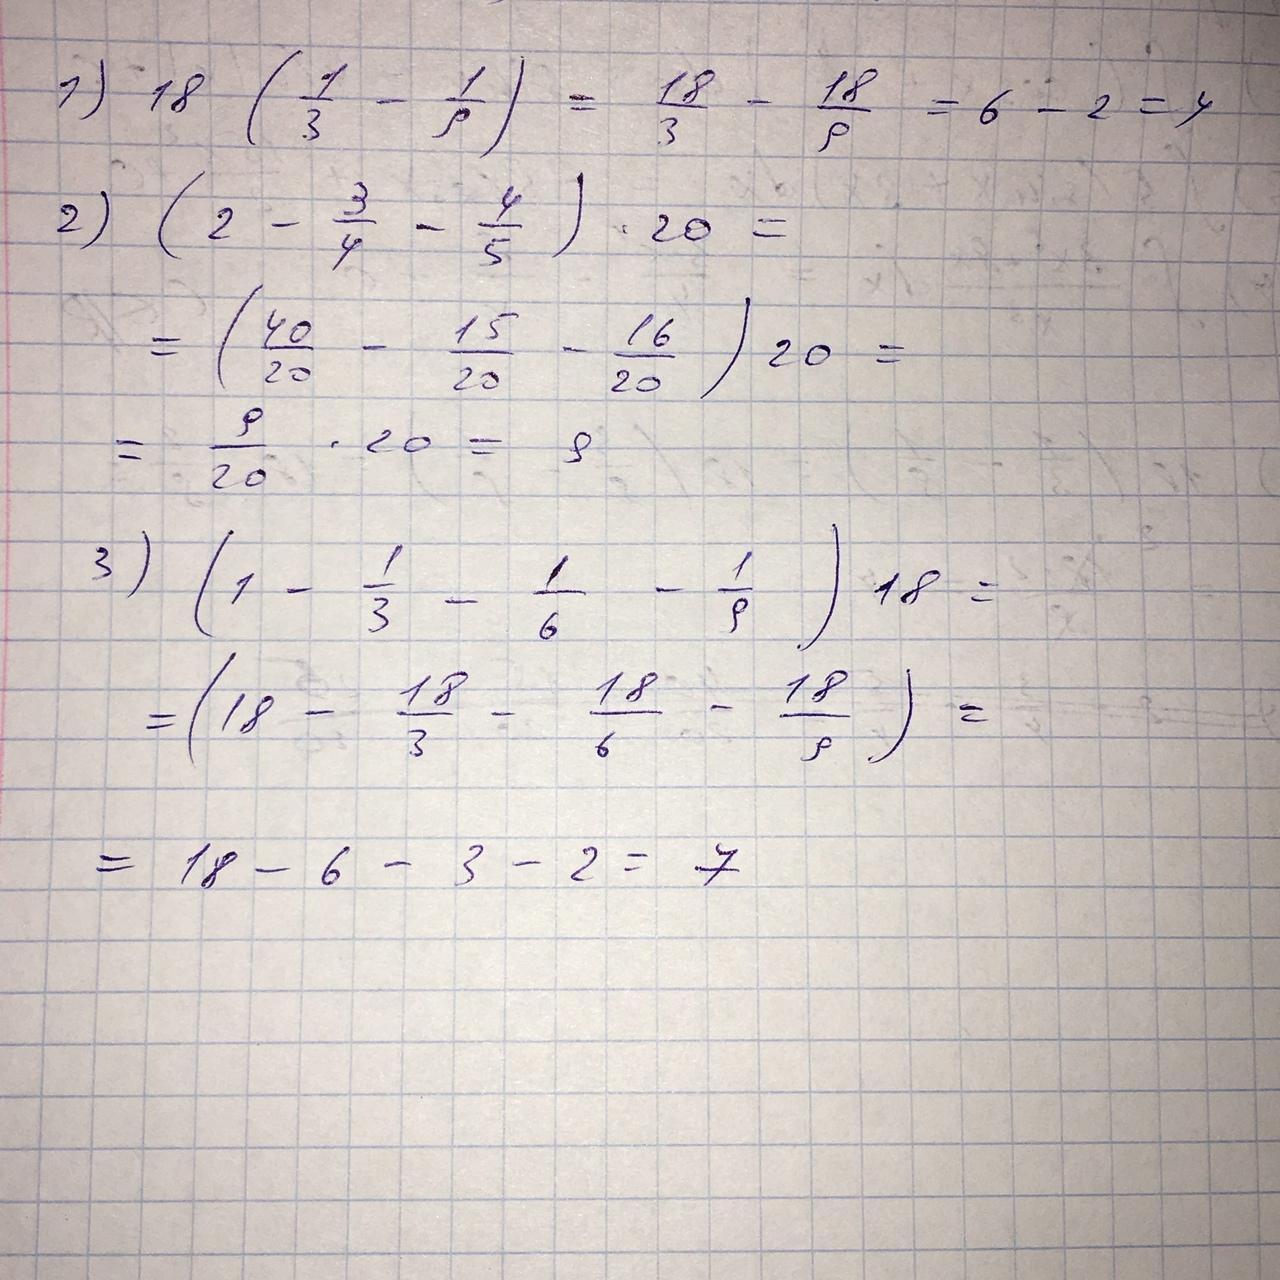 1) 18 (1/3 - 1/9) = 18/3 - 18/9 = 6 - 2 = 4
2) (2 - 3/4 - 4/5) · 20 =
= (40/20 - 15/20 - 16/20) 20 =
= 9/20 · 20 = 9
3) (1 - 1/3 - 1/6 - 1/9) 18 =
= (18 - 18/3 - 18/6 - 18/9) =
= 18 - 6 - 3 - 2 = 7